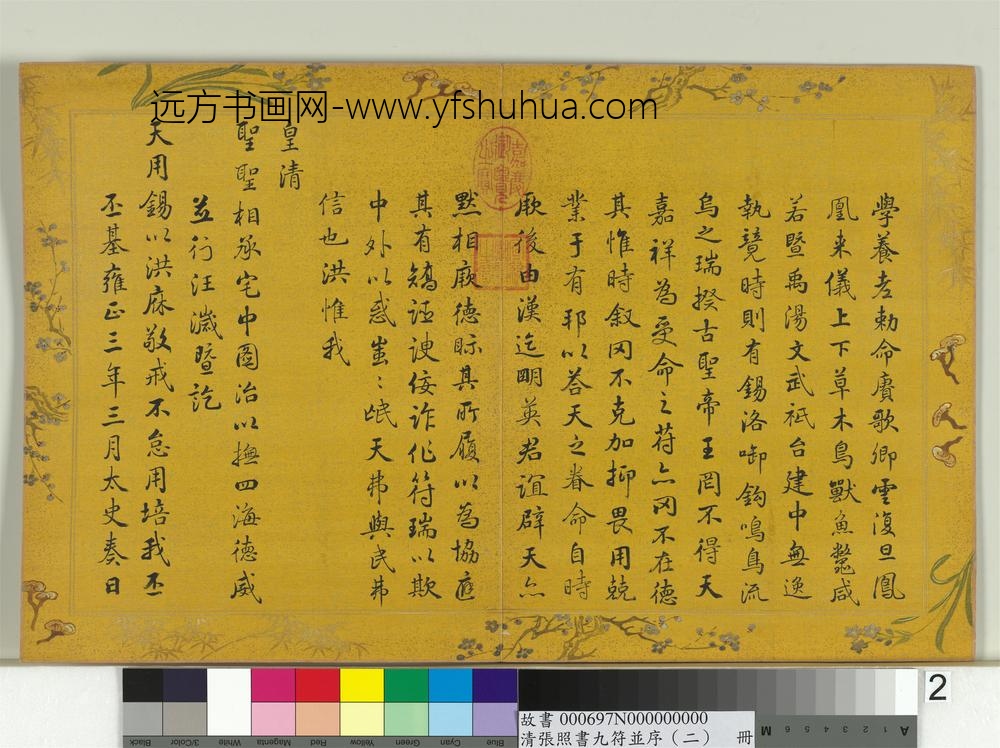 远方书画网-www.yfshuhua.com
學養老勅命賡歌卿雲復旦鳳
凰来儀上下草木鳥獸魚鼈咸
若暨禹湯文武祇台建中無逸
執競時則有錫洛啣鈎鳴鳥流
烏之瑞揆古聖帝王罔不得天
嘉祥為受命之符亦罔不在德
其惟時叙罔不克加抑畏用兢
業于有邦以荅天之眷命自時
厥後由漢迄明英君誼辟天亦
默相厥德眎其所履以為協應
其有矯誣諛佞詐作符瑞以欺
中外以惑蚩〻氓天弗與民弗
信也洪惟我
皇清
聖聖相承宅中圖治以撫四海德威
並行汪濊暨訖
天用錫以洪庥敬戒不怠用培我丕
丕基雍正三年三月太史奏日
2
故書 000697N000000000
清張照書九符並序（二） 冊
Black
3/Color
White
Magenta
Red
Yellow
Green
Cyan
Blue
M
A
1
2
3
4
5
6